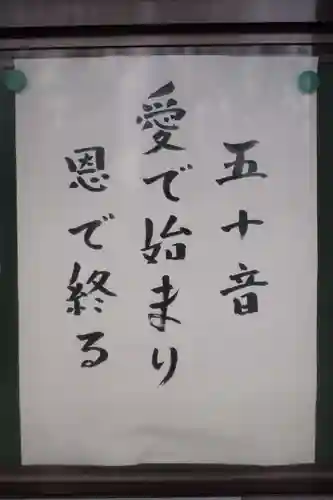 五十音
愛で始まり
恩で終る